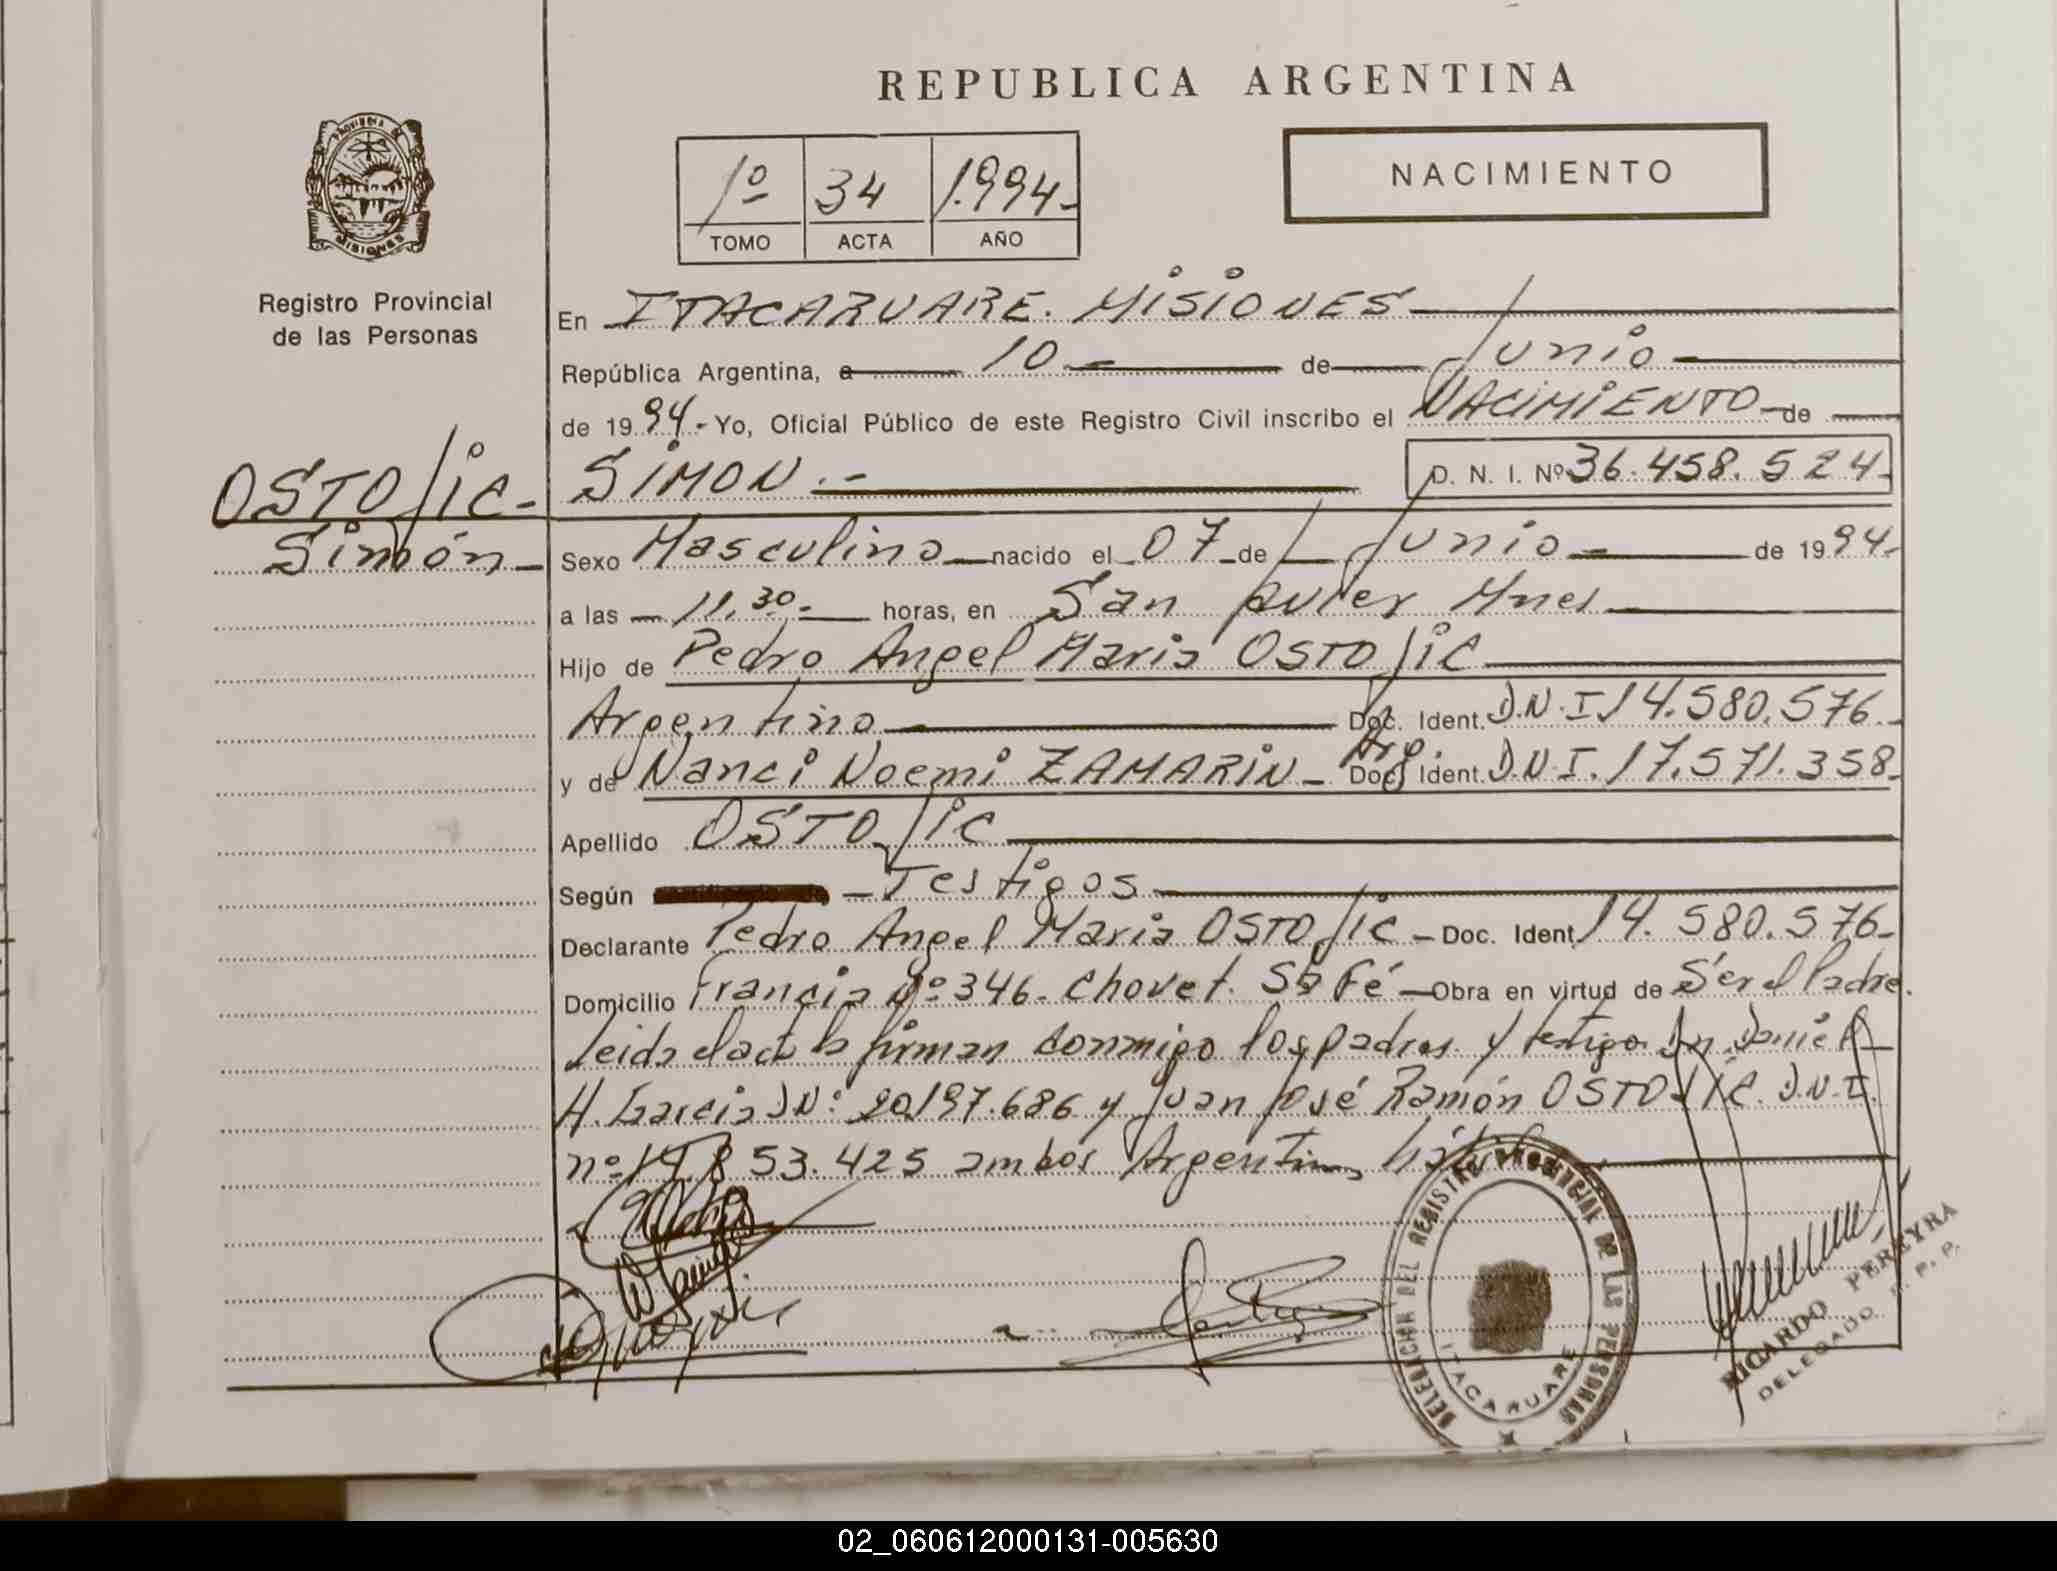 REPUBLICA ARGENTINA
PROVINCIA DE
MISIONES
Registro Provincial
de las Personas
1º 34 1.994-
TOMO ACTA AÑO
NACIMIENTO
En ITACARUARE. MISIONES
República Argentina, a 10 - de Junio -
de 1994.- Yo, Oficial Público de este Registro Civil inscribo el NACIMIENTO - de
OSTOJIC-
Simón-
SIMON.- D. N. I. Nº 36.458.524-
Sexo Masculino - nacido el 07 - de Junio - de 1994-
a las - 11,30.- horas, en San Javier Mnes
Hijo de Pedro Angel Maria OSTOJIC
Argentino Doc. Ident. D.N.I 14.580.576.-
y de Nanci Noemi ZAMARIN - Arg. Doc. Ident. D.N.I. 17.571.358-
Apellido OSTOJIC
Según - Testigos
Declarante Pedro Angel Maria OSTOJIC - Doc. Ident. 14.580.576-
Domicilio Francia Nº 346- Chovet. Sta Fé - Obra en virtud de Ser el Padre.
Leida el acta la firman conmigo los padres y testigos Daniel
H. Garcia DN: 20.197.686 y Juan José Ramón OSTOJIC. D.N.I.
nº 53.425 ambos Argentinos
DELEGACION DEL REGISTRO PROVINCIAL DE LAS PERSONAS
ITACARUARE
RICARDO PEREYRA
DELEGADO R. P. P.
02_060612000131-005630